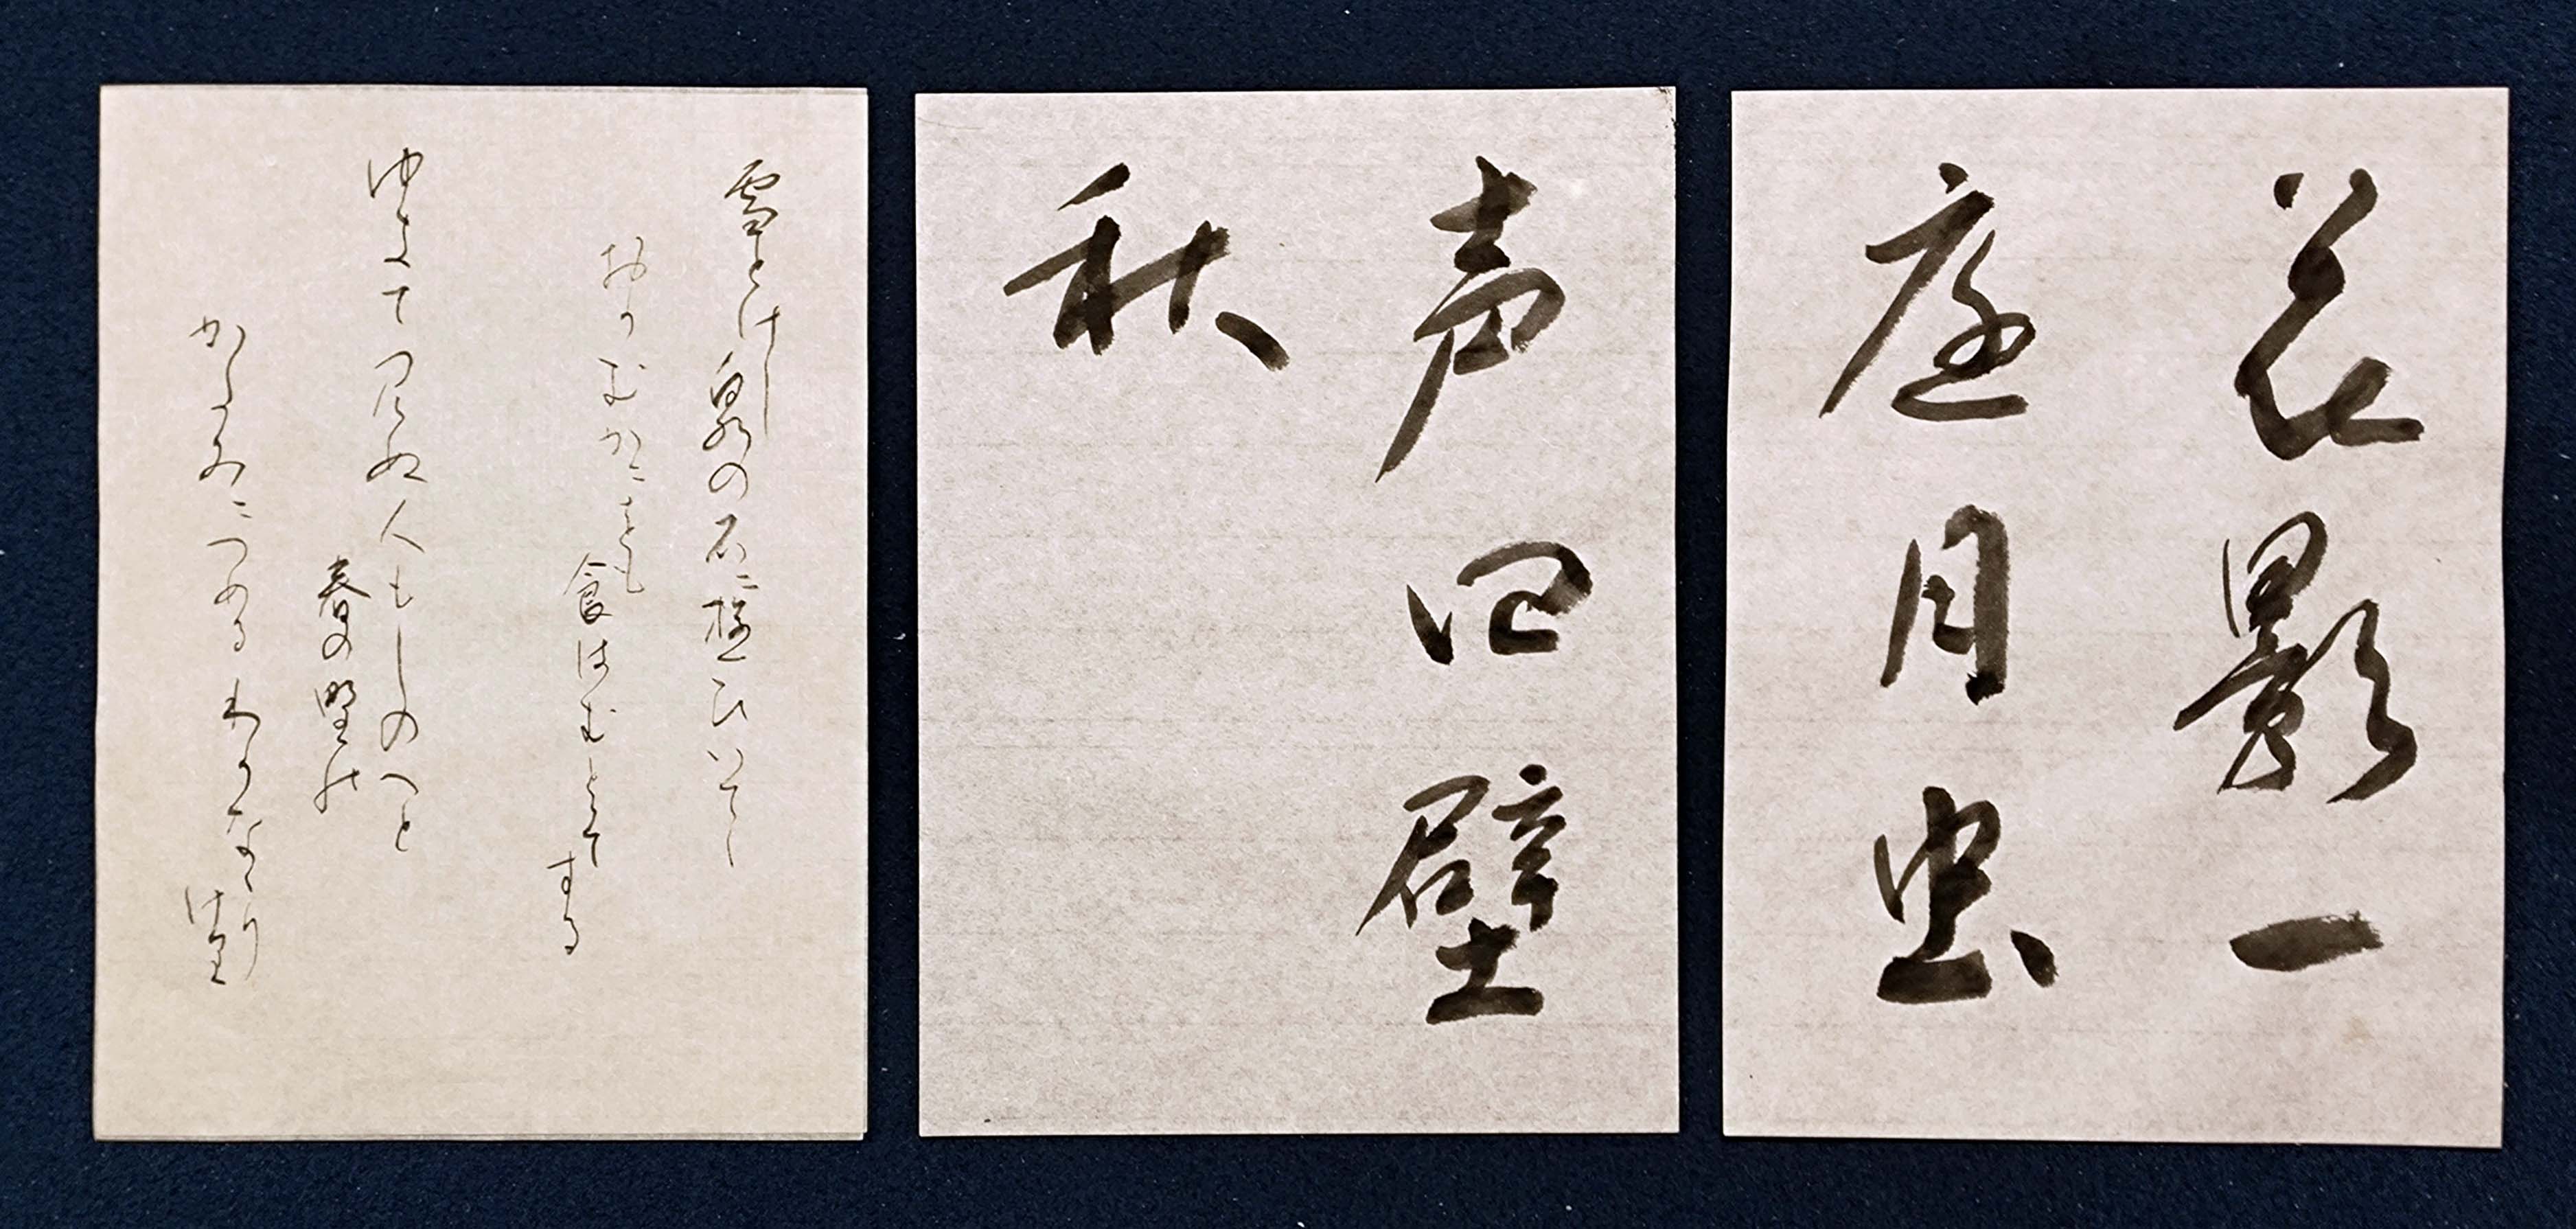 花影一
庭月虫
声四壁
秋
雪とけし泉の石に
かにをも
食はむと
する
ゆきて見ぬ人もしのへと
春の野の
かたみにつめるわかななり
けり